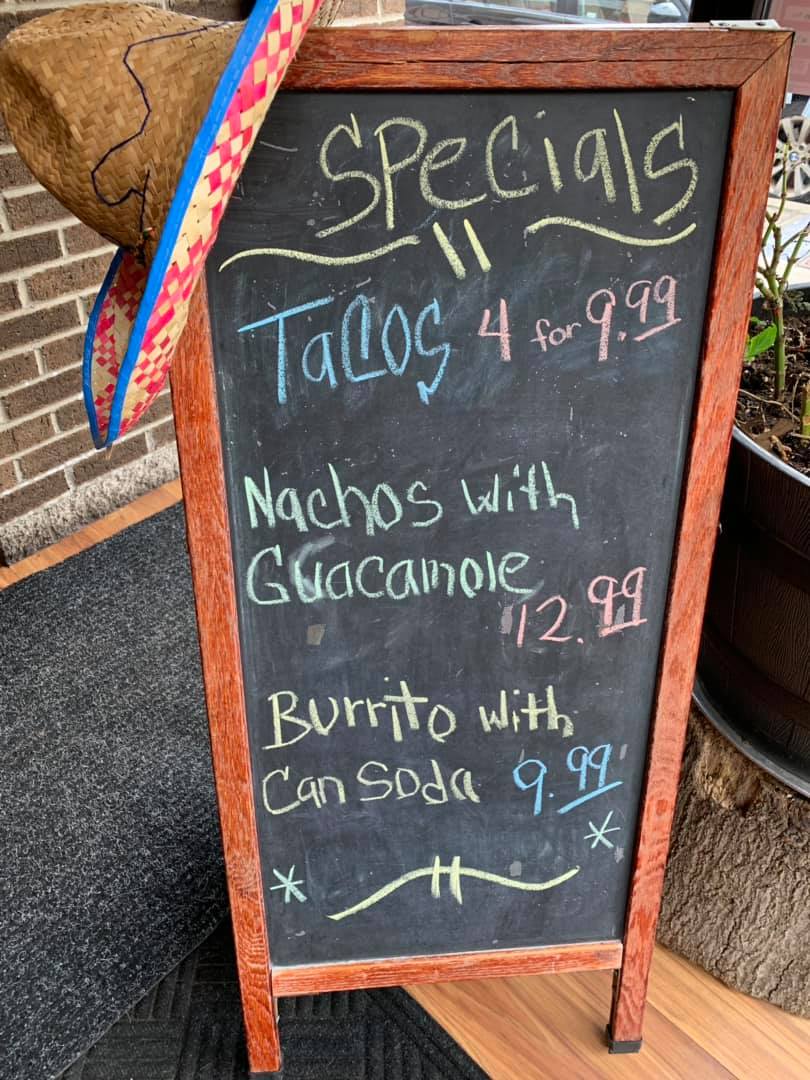 Specials
Tacos 4 for 9.99
Nachos with
Guacamole
12.99
Burrito with
Can Soda 9.99